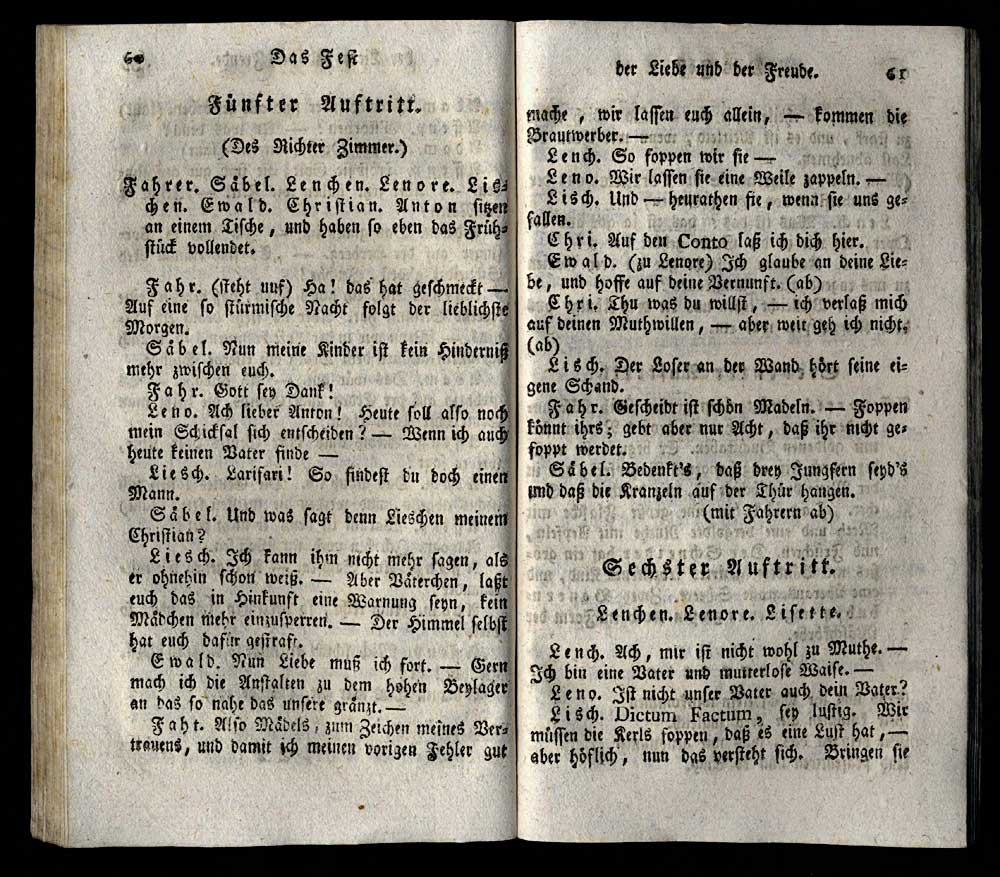 60 Das Fest
Fünfter Auftritt.
(Des Richter Zimmer.)
Fahrer. Säbel. Lenchen. Lenore. Lis=
chen. Ewald. Christian. Anton sitzen
an einem Tische, und haben so eben das Früh=
stück vollendet.
Fahr. (steht uuf) Ha! das hat geschmeckt —
Auf eine so stürmische Nacht folgt der lieblichste
Morgen.
Säbel. Nun meine Kinder ist kein Hinderniß
mehr zwischen euch.
Fahr. Gott sey Dank!
Leno. Ach lieber Anton! Heute soll also noch
mein Schicksal sich entscheiden? — Wenn ich auch
heute keinen Vater finde —
Liesch. Larifari! So findest du doch einen
Mann.
Säbel. Und was sagt denn Lieschen meinem
Christian?
Liesch. Ich kann ihm nicht mehr sagen, als
er ohnehin schon weiß. — Aber Väterchen, laßt
euch das in Hinkunft eine Warnung seyn, kein
Mädchen mehr einzusperren. — Der Himmel selbst
hat euch dafür gestraft.
Ewald. Nun Liebe muß ich fort. — Gern
mach ich die Anstalten zu dem hohen Beylager
an das so nahe das unsere gränzt. —
Faht. Also Mädels, zum Zeichen meines Ver=
trauens, und damit ich meinen vorigen Fehler gut
der Liebe und der Freude. 61
mache, wir lassen euch allein, — kommen die
Brautwerber. —
Lench. So foppen wir sie —
Leno. Wir lassen sie eine Weile zappeln. —
Lisch. Und — heurathen sie, wenn sie uns ge=
fallen.
Chri. Auf den Conto laß ich dich hier.
Ewald. (zu Lenore) Ich glaube an deine Lie=
be, und hoffe auf deine Vernunft. (ab)
Chri. Thu was du willst, — ich verlaß mich
auf deinen Muthwillen, — aber weit geh ich nicht.
(ab)
Lisch. Der Loser an der Wand hört seine ei=
gene Schand.
Fahr. Gescheidt ist schön Madeln. — Foppen
könnt ihrs; gebt aber nur Acht, daß ihr nicht ge=
foppt werdet.
Säbel. Bedenkt's, daß drey Jungfern seyd's
und daß die Kranzeln auf der Thür hangen.
(mit Fahrern ab)
Sechster Auftritt.
Lenchen. Lenore. Lisette.
Lench. Ach, mir ist nicht wohl zu Muthe. —
Ich bin eine Vater und mutterlose Waise. —
Leno. Ist nicht unser Vater auch dein Vater?
Lisch. Dictum Factum, sey lustig. Wir
müssen die Kerls foppen, daß es eine Lust hat, —
aber höflich, nun das versteht sich. Bringen sie